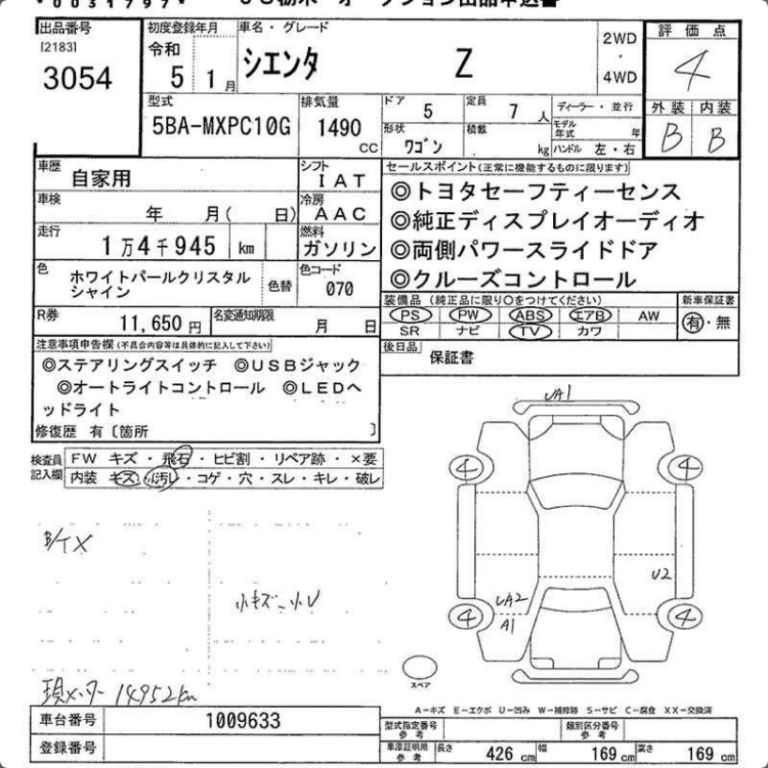 出品番号
[2183]
3054
初度登録年月
令和
5 1月
車名・グレード
シエンタ Z
2WD
・
4WD
評価点
4
外装 内装
B B
型式
5BA-MXPC10G
排気量
1490
CC
ドア 5
定員 7 人
形状 ワゴン
積載 kg
ディーラー・並行
モデル年式 年
ハンドル 左・右
車歴
自家用
シフト
IAT
車検
年 月( 日)
冷房
AAC
走行
1万4千945 km
燃料
ガソリン
色
ホワイトパールクリスタル
シャイン
色替
色コード
070
R券
11,650円
名変通知期限
月 日
セールスポイント(正常に機能するものに限ります)
◎トヨタセーフティーセンス
◎純正ディスプレイオーディオ
◎両側パワースライドドア
◎クルーズコントロール
装備品(純正品に限り〇をつけてください)
PS PW ABS エアB AW
SR ナビ TV カワ
新車保証書
有・無
後日品
保証書
注意事項申告欄(不具合内容等は具体的に記入して下さい)
◎ステアリングスイッチ ◎USBジャック
◎オートライトコントロール ◎LEDヘ
ッドライト
修復歴 有〔箇所 〕
検査員
記入欄
FW キズ・飛石・ヒビ割・リペア跡・×要
内装 キズ・汚レ・コゲ・穴・スレ・キレ・破レ
B/T X
小キズ-小U
現メーター 14952km
UA1
4
4
U2
UA2
A1
4
4
スペア
A-キズ E-エクボ U-凹み W-補修跡 S-サビ C-腐食 XX-交換済
車台番号
1009633
登録番号
型式指定番号
参考
類別区分番号
参考
車庫証明用
参考
長さ 426 cm
幅 169 cm
高さ 169 cm